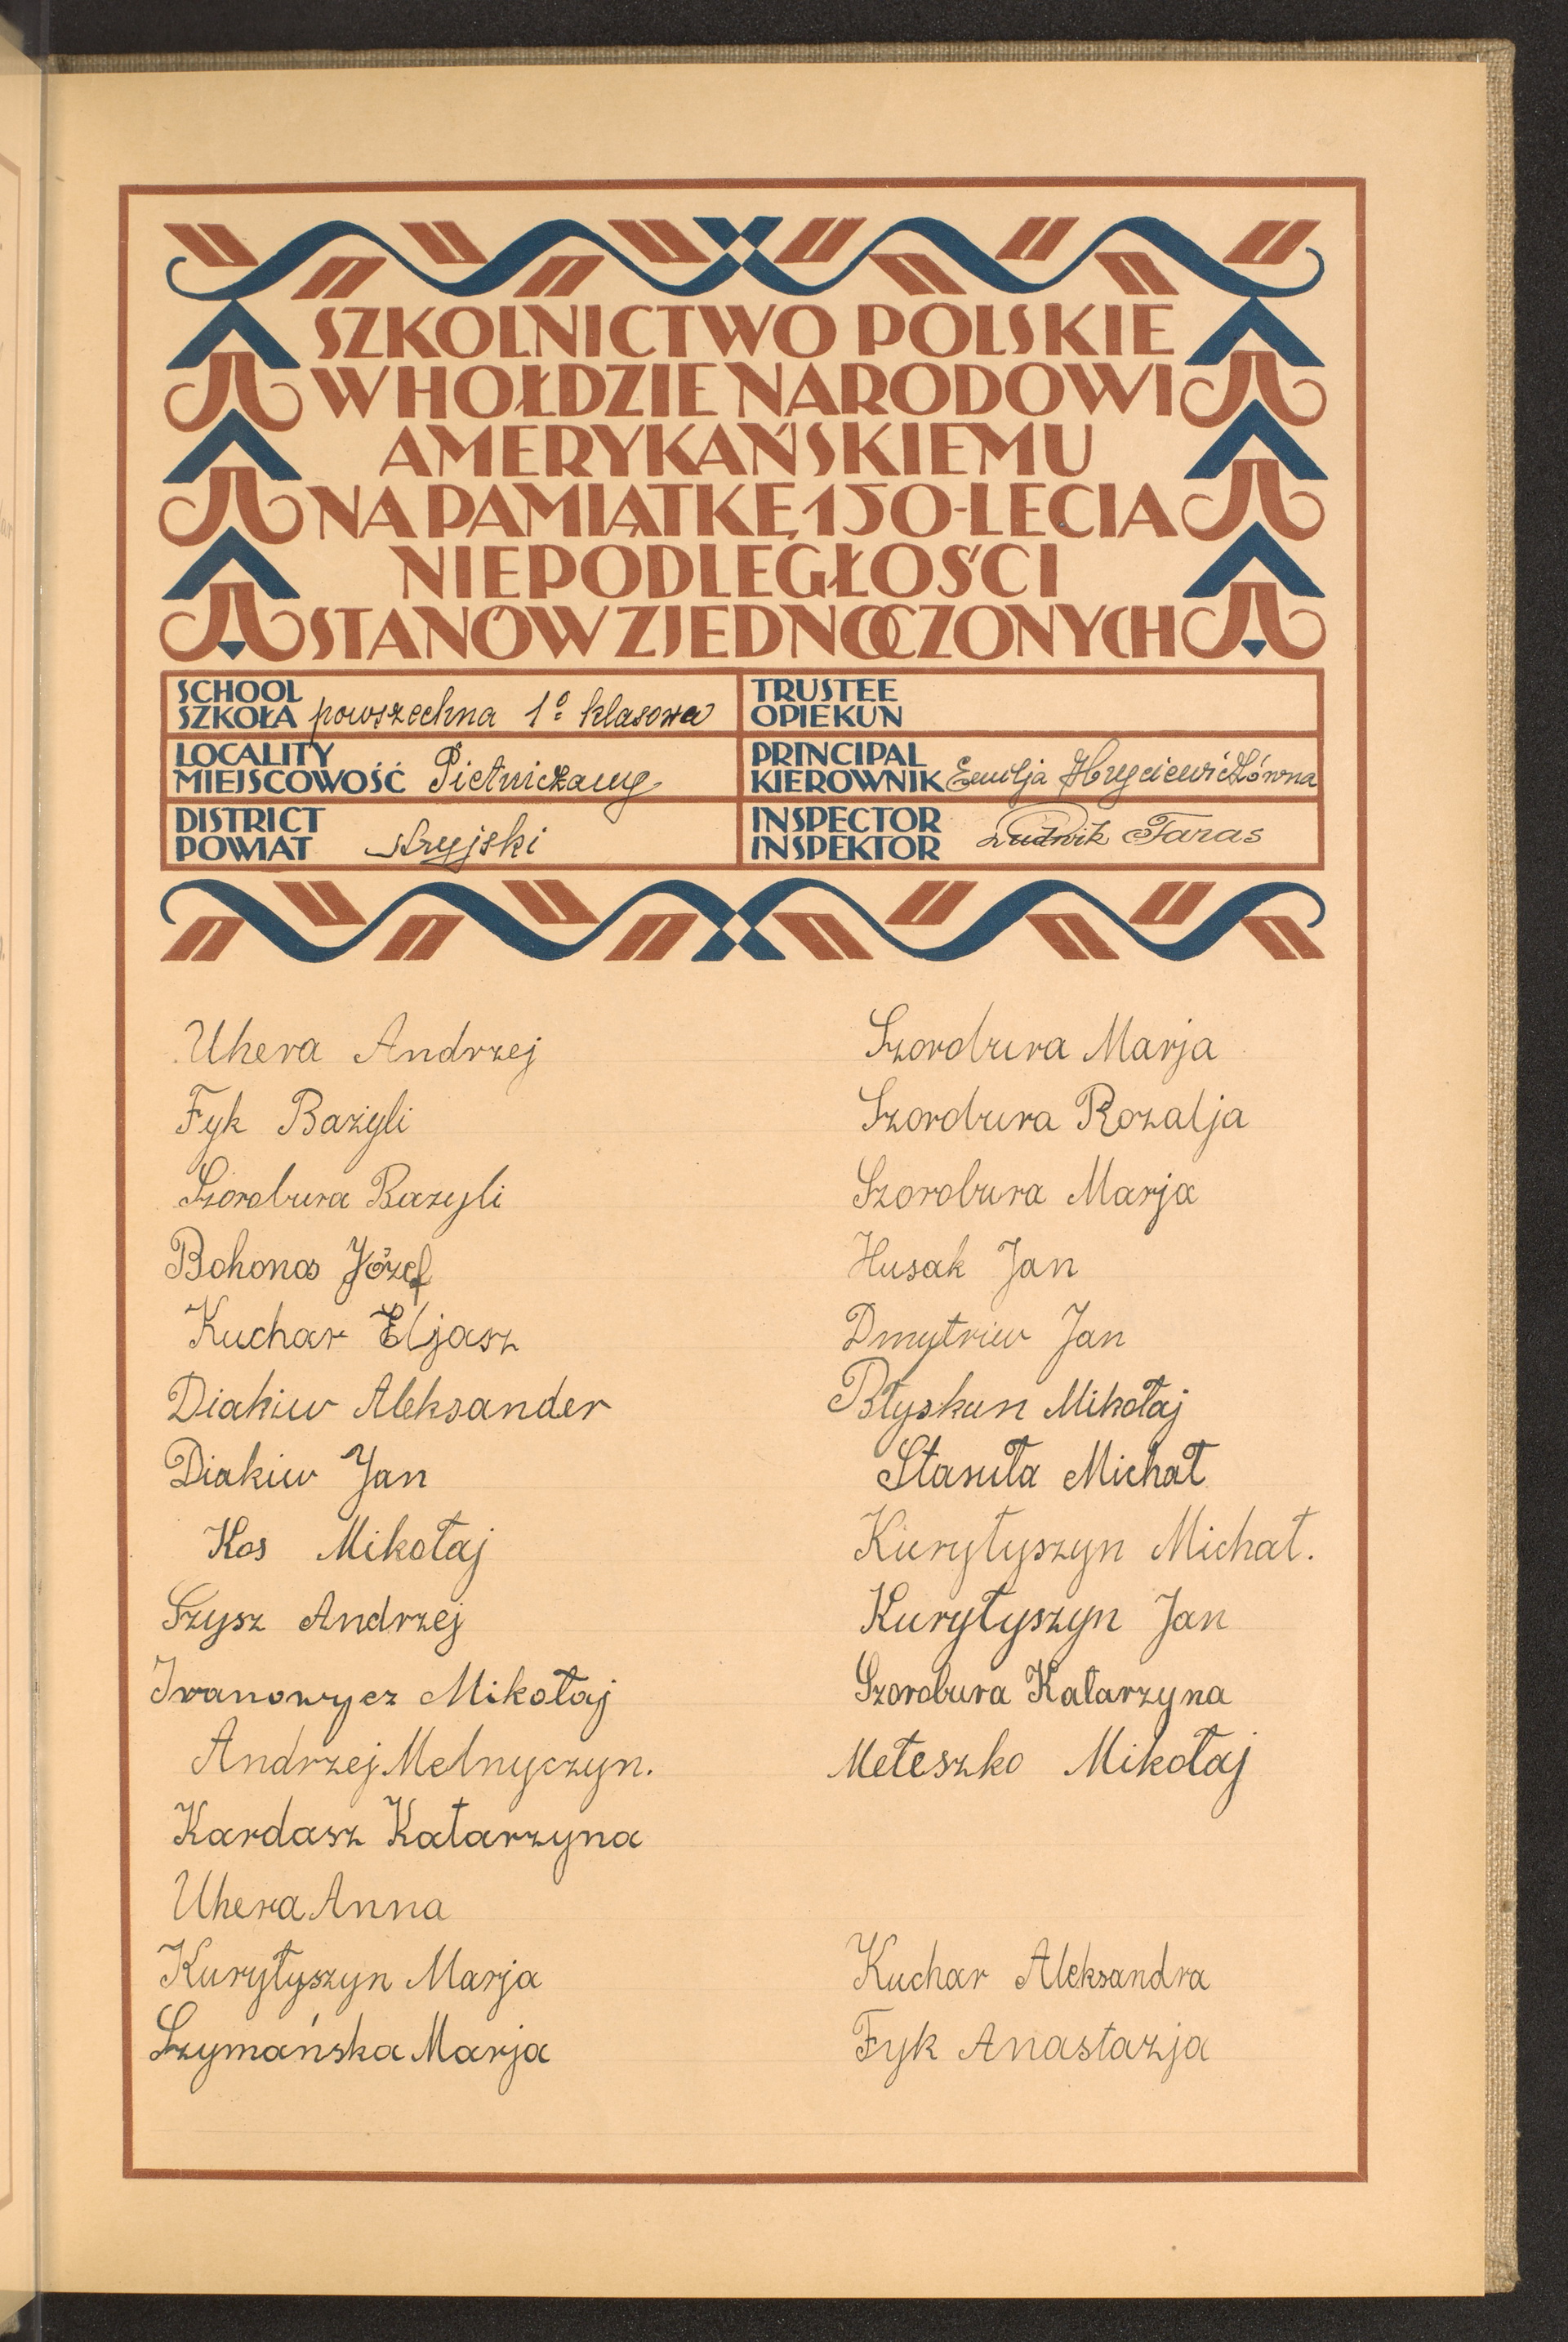 SZKOLNICTWO POLSKIE
W HOŁDZIE NARODOWI
AMERYKAŃSKIEMU
NA PAMIĄTKĘ 150-LECIA
NIEPODLEGŁOŚCI
STANÓW ZJEDNOCZONYCH
SCHOOL
SZKOŁA powszechna 1º klasowa
TRUSTEE
OPIEKUN
LOCALITY
MIEJSCOWOŚĆ Pietniczany
PRINCIPAL
KIEROWNIK Emilja Hryciewiczówna
DISTRICT
POWIAT stryjski
INSPECTOR
INSPEKTOR Ludwik Taras
Uhera Andrzej
Fyk Bazyli
Szorobura Bazyli
Bohonos Józef
Kuchar Eljasz
Diakiw Aleksander
Diakiw Jan
Kos Mikołaj
Szysz Andrzej
Iwanowycz Mikołaj
Andrzej Melnyczyn.
Kardasz Katarzyna
Uhera Anna
Kuryłyszyn Marja
Szymańska Marja
Szorobura Marja
Szorobura Rozalja
Szorobura Marja
Husak Jan
Dmytriw Jan
Błyskun Mikołaj
Stasuła Michał
Kuryłyszyn Michał.
Kuryłyszyn Jan
Szorobura Katarzyna
Meteszko Mikołaj
Kuchar Aleksandra
Fyk Anastazja